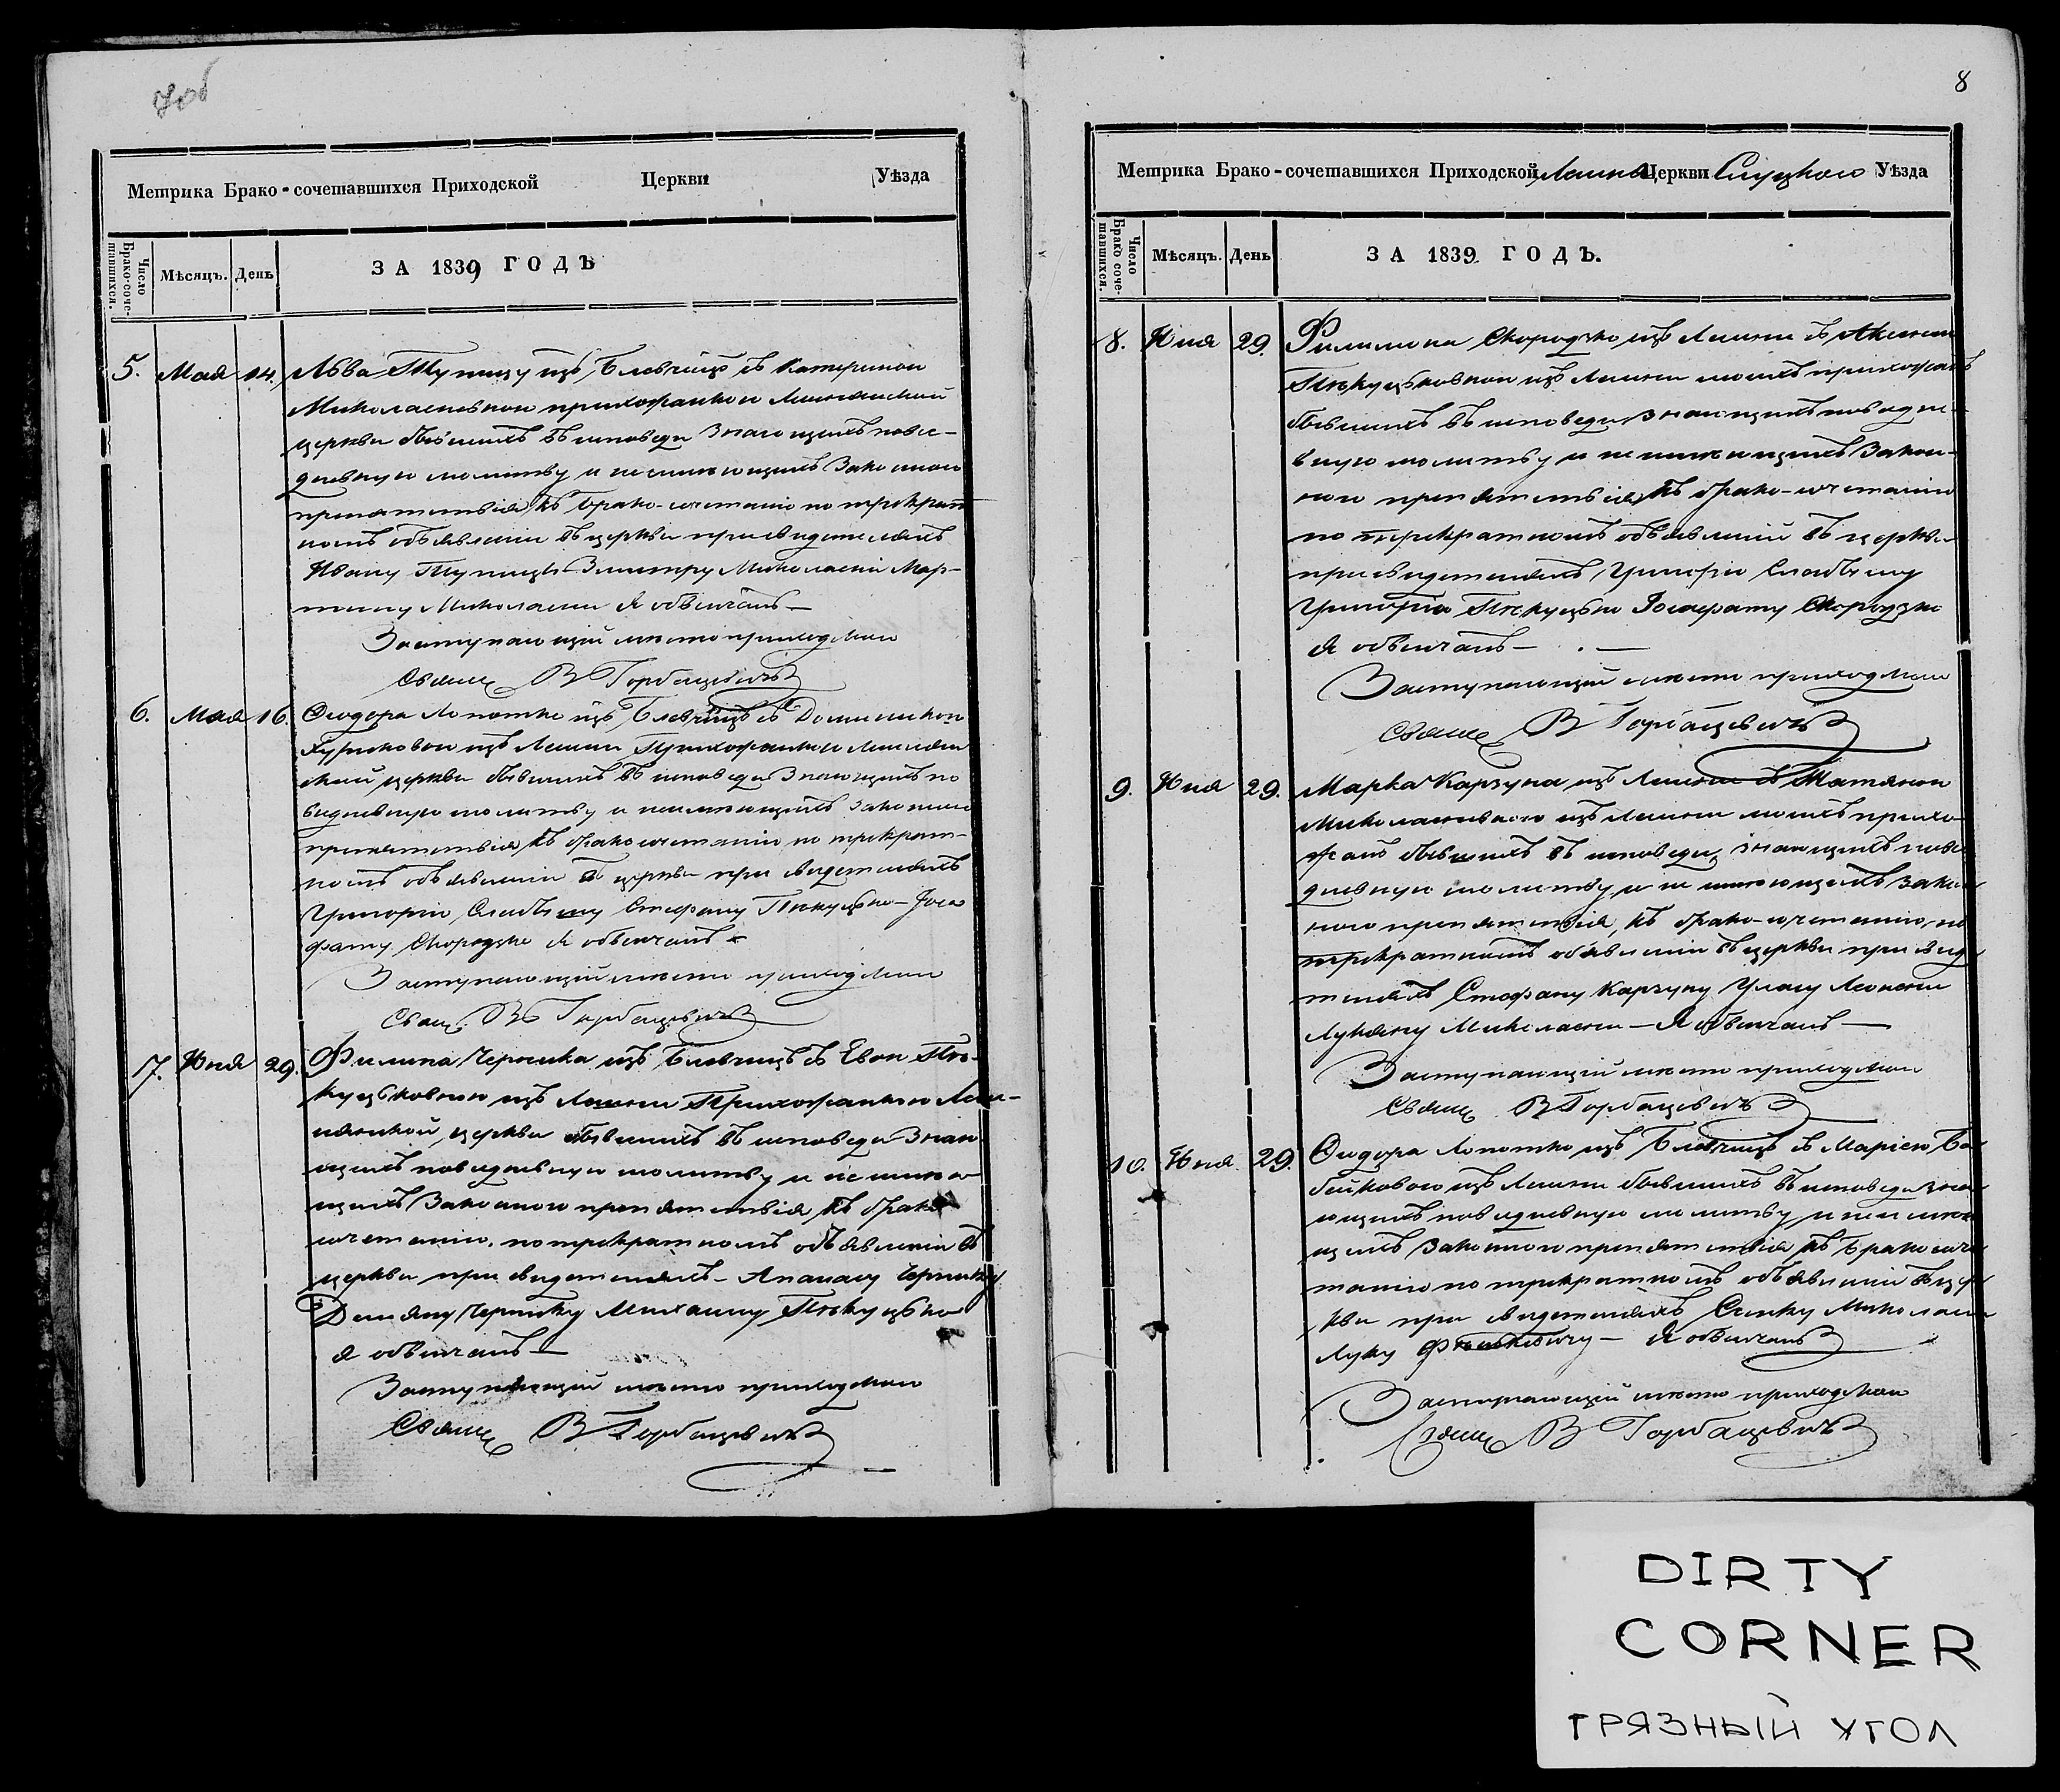 7об
Метрика Брако-сочетавшихся Приходской Церкви Уѣзда
Число Брако-соче-тавшихся.
Мѣсяцъ.
День
ЗА 1839 ГОДЪ
5. Мая 14. Льва Тупицу изъ Блевчицъ съ Катериною
Миколаеневною прихожанкою Лешнянской
церкви бывшихъ въ исповеди знающихъ повсе-
дневную молитву и неимеющихъ Законного
препятствія къ брако-сочетанію по трократ
номъ объявленіи въ церкви присвидетеляхъ
Ивану Тупицы Змитру Миколаени Мар-
тину Миколаени я обвенчалъ—
Заступающій место приходского
Свящ В Горбацевичъ
6. Мая 16. Феодора Лопотко изъ Блевчицъ съ Доминикою
изъ Лешни Прихожанкою Лешнян
ской церкви бывшихъ въ исповеди знающихъ по
вседневную молитву и неимеющихъ законного
препятствія къ бракосочетанію по трократ-
номъ объявленіи въ церкви при свидетеляхъ
Григорію Слабкому Стефану Пекуцько Іоса
фату Скородзко я обвенчалъ
Заступающій место приходского
Свящ. В Горбацевичъ
17. Юня 29. Филипа Черника изъ Блевчицъ съ Евою Пе-
куцьковною изъ Лешни Прихожанкою Леш-
нянской церкви бывшихъ въ исповеди знаю
щихъ повседневную молитву и не имею
щихъ Законного препятствія къ брако
сочетанію. по трократномъ объявленіи въ
церкви при свидетеляхъ- Апанасу Чернику
Демяну Чернику Михаилу Пекуцько
я обвенчалъ—
Заступающій место приходского
Свящ В Горбацевичъ
8
Метрика Брако-сочетавшихся Приходской Лешня Церкви Слуцкого Уѣзда
Число Брако соче-тавшихся.
Мѣсяцъ.
День
ЗА 1839 ГОДЪ.
8. Юня 29. Филимона Скородзко изъ Лешни съ
Пекуцьковною изъ Лешни моихъ прихожанъ
бывшихъ въ исповеди знающихъ повседне-
вную молитву и не имеющихъ Закон-
ного препятствія къ брако-сочетанію
по трекратномъ объявленій въ церкви
присвидетеляхъ Григорію Слабкому
Григорію Пекуцько Іосафату Скородзко
я обвенчалъ—
Заступающій место приходского
Свящ В Горбацевичъ
9. Юня 29. Марка Карзуна изъ Лешни съ Татяною
Миколаеневною изъ Лешни моихъ прихо-
жанъ бывшихъ въ исповеди знающихъ повсе
дневную молитву и не имеющихъ закон
ного препятствія, къ брако-сочетанію, по
трократномъ объявленіи въ церкви присвиде
теляхъ Стефану Карзуну Уласу
Лукяну Миколаени—Я обвенчалъ—
Заступающій место приходского
Свящ В Горбацевичъ
10. Юня 29. Феодора Лопотко изъ Блевчицъ съ Маріею Ба
бейковою изъ Лешни бывшихъ въ исповеди зна
ющихъ повседневную молитву и не имею
щихъ Законного препятствія къ Бракосоче
танію по трократномъ объявленій въ цер
кви при свидетеляхъ Семку Миколаени
Луку — Я обвенчалъ
Заступающій место приходского
Свящ В Горбацевичъ
DIRTY
CORNER
ГРЯЗНЫЙ УГОЛ